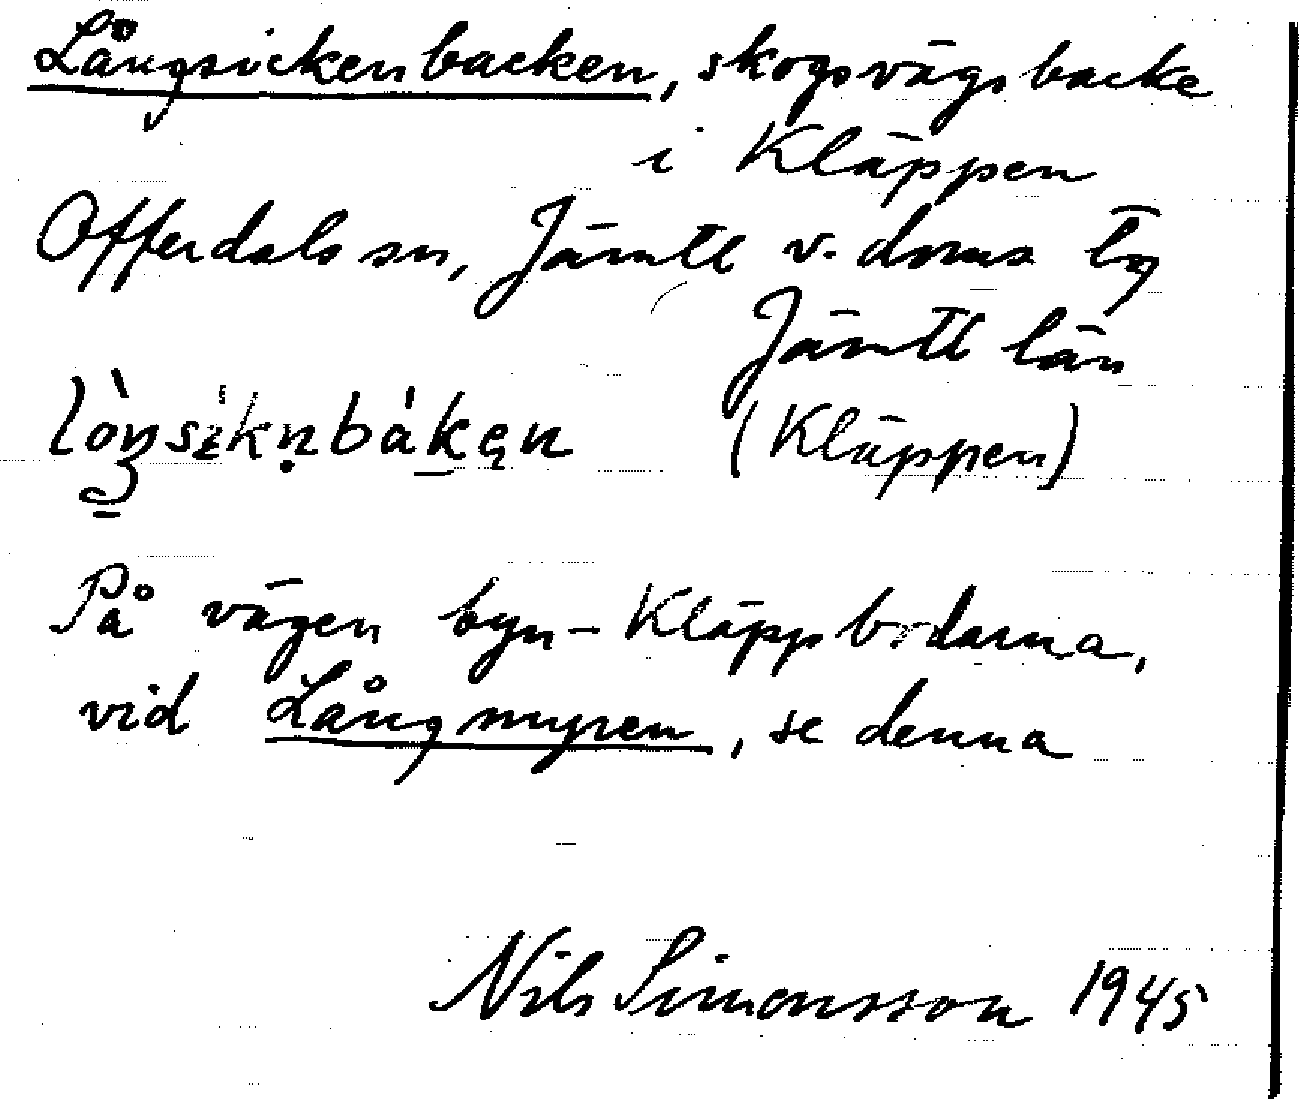 Långsickenbacken, skogsvägsbacke
i Kläppen
Offerdals sn, Jämtl v. doms by
Jämtl län
lòŋsìkn̥bàkęn (Kläppen)
På vägen byn-Kläppbodarna,
vid Långmyren, se denna
Nils Simonsson 1945